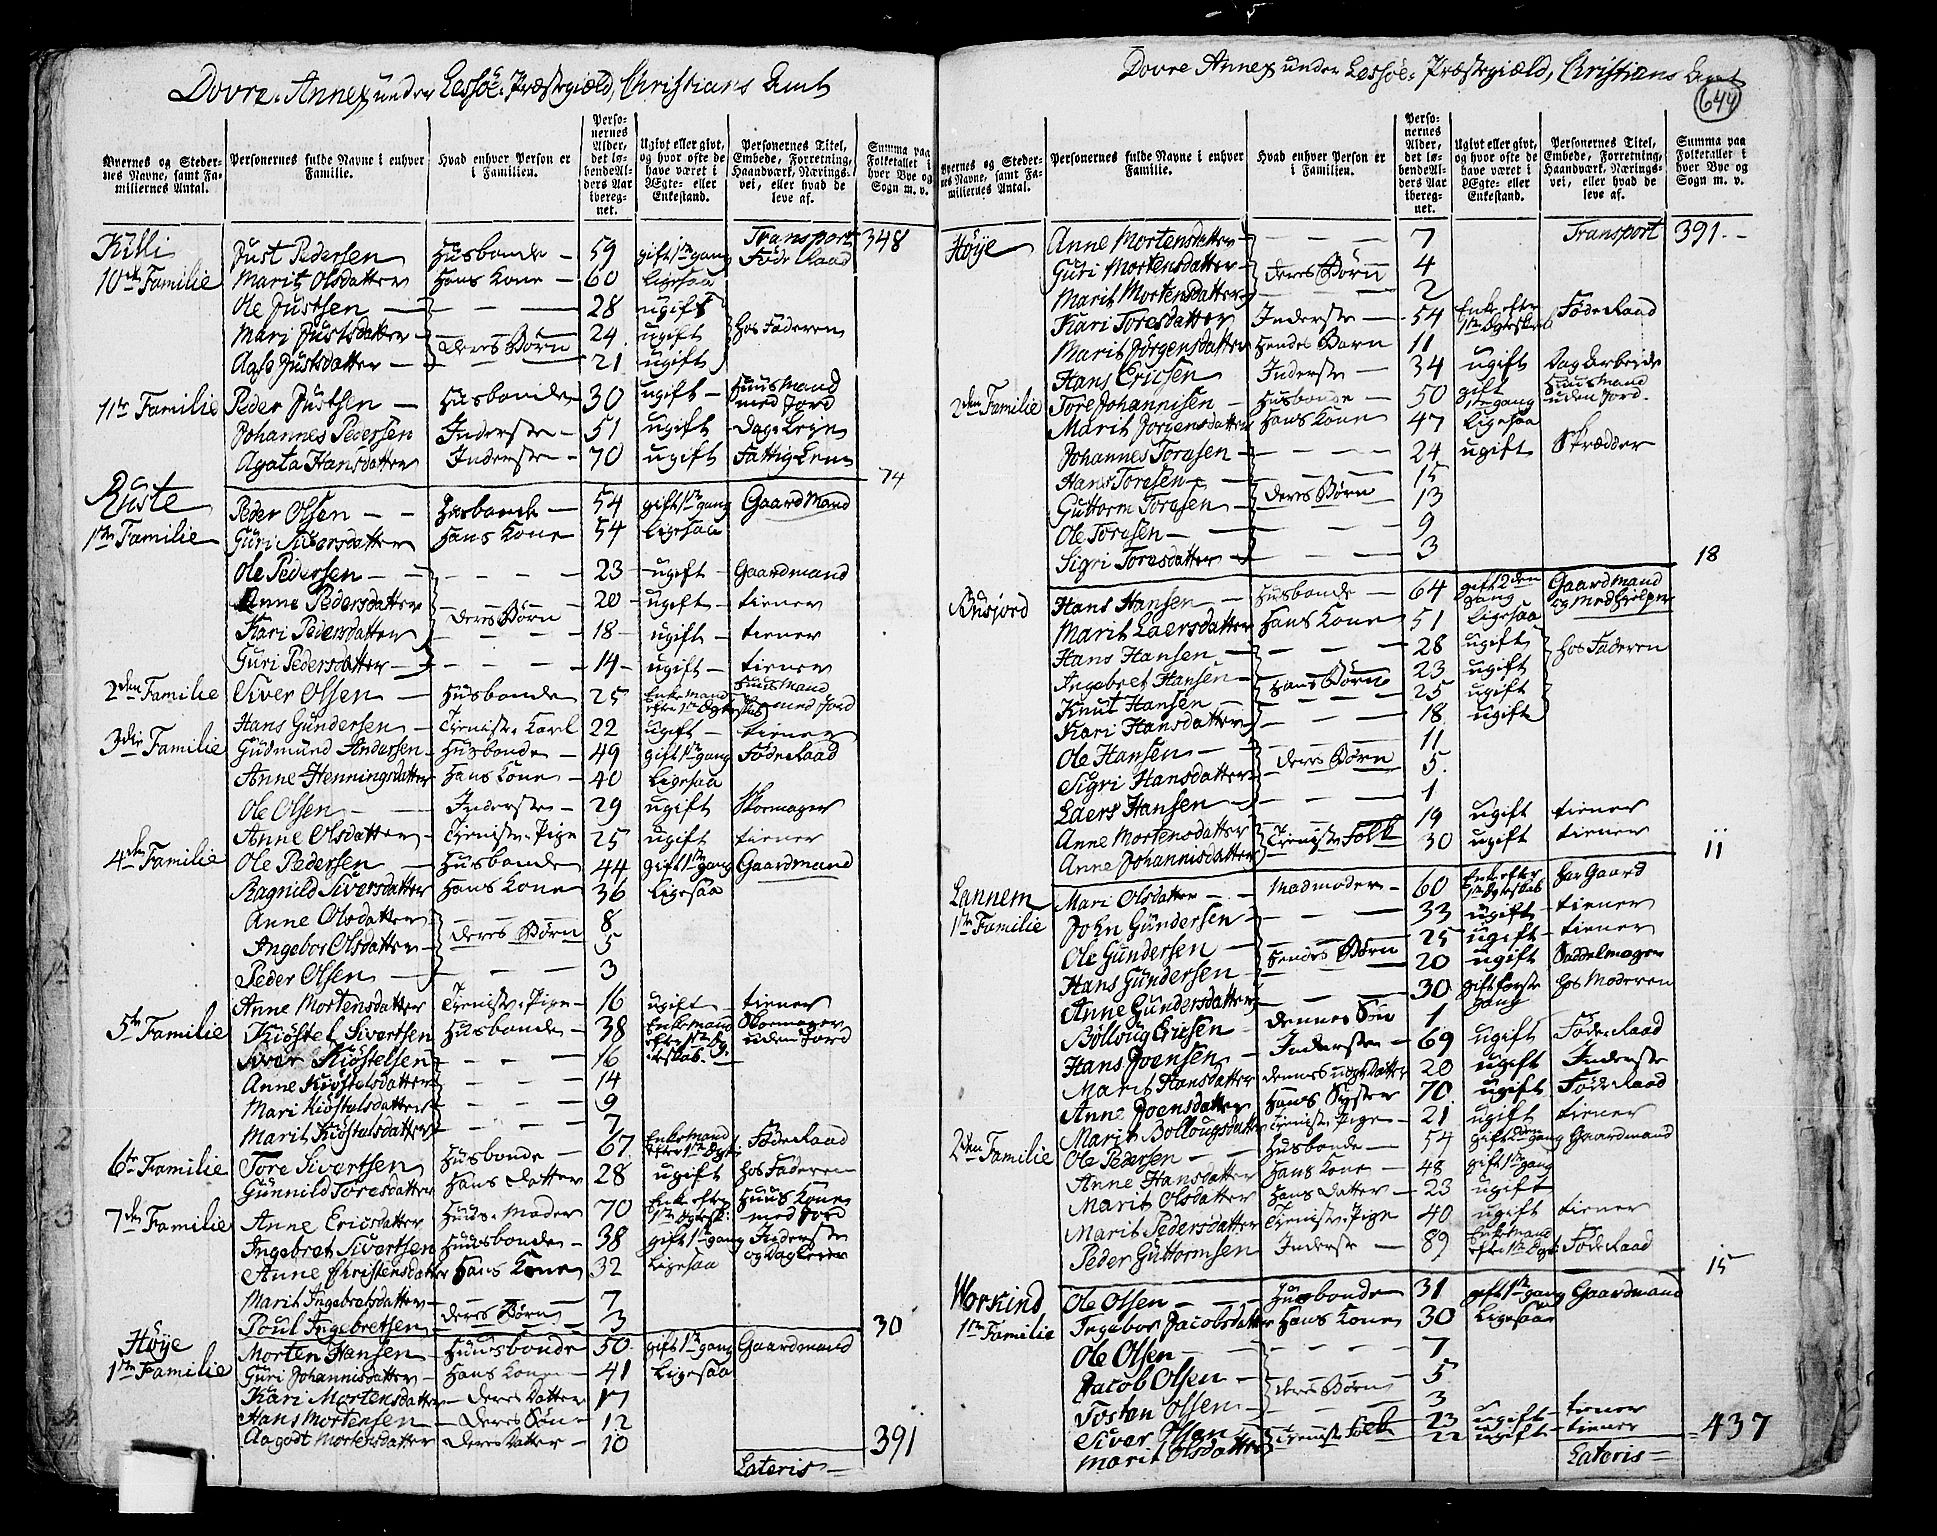 5
Dovre Annex under Lessøe Præstegiæld, Christians Amt
Byernes og Stedernes Navne, samt Familiernes Antal. Personernes fulde Navne i enhver Familie. Hvad enhver Person er i Familien. Personernes Alder, det løbende Alders Aar iberegnet. Ugivt eller givt, og hvor ofte de have været i Ægte- eller Enkestand. Personernes Titel, Embede, Forretning, Haandværk, Næringsvei, eller hvad de leve af. Summa paa Folketallet i hver Bye og Sogn m. v.
Transport 348
Killi Just Pedersen Husbonde 59 gift 1te gang Føde Raad
10de Familie Marit Olsdatter Hans Kone 60 Ligesaa
Ole Justsen 28 ugift
Mari Justsdatter deres Børn 24 ugift hos Faderen
Agte Justsdatter 21 ugift
11te Familie Peder Justsen Husbonde 30 ugift Huusmand med Jord
Johannes Pedersen Inderste 51 ugift
Agata Hansdatter Inderste 70 ugift Fattig Lem
74
Ruste Peder Olsen Husbonde 54 gift 1te gang Gaard Mand
1te Familie Guri Siversdatter Hans Kone 54 Ligesaa
Ole Pedersen 23 ugift Gaardmand
Anne Pedersdatter 20 ugift tiener
Kari Pedersdatter deres Børn 18 ugift tiener
Guri Pedersdatter 14 ugift tiener
2den Familie Siver Olsen Husbonde 25 Enkemand efter 1te Ægteskab Huusmand med Jord
Hans Gundersen Tieniste Karl 22 ugift tiener
3die Familie Gudmund Andersen Husbonde 49 gift 1te gang Føde Raad
Anne Henningsdatter Hans Kone 40 Ligesaa
Ole Olsen Inderste 29 ugift Skoemager
Anne Olsdatter Tieniste Pige 25 ugift tiener
4de Familie Ole Pedersen Husbonde 44 gift 1te gang Gaardmand
Ragnild Siversdatter Hans Kone 36 Ligesaa
Anne Olsdatter 8
Ingebor Olsdatter deres Børn 5
Peder Olsen 3
Anne Mortensdatter Tieniste Pige 16 ugift tiener
5te Familie Kiøstel Sivertsen Husbonde 38 Enkemand Skoemager uden Jord
Siver Kiøstelsen 16
Anne Kiøstelsdatter 14
Mari Kiøstelsdatter 9
Marit Kiøstelsdatter 7
6te Familie Tore Sivertsen Husbonde 67 Enkemand efter 1te Føde Raad
Gunnild Toresdatter Hans datter 28 ugift hos Faderen
7de Familie Anne Ericsdatter Huus Moder 70 Enke efter 1te Huus Kone med Jord
Ingebret Sivertsen Huusbonde 38 gift 1te gang Inderste og
Anne Christensdatter Hans Kone 32 Ligesaa
Marit Ingebretsdatter 7
Poul Ingebretsen deres Børn 3
30
Høye Morten Hansen Huusbonde 50 gift 1te gang Gaardmand
1te Familie Guri Johannisdatter Hans Kone 41 Ligesaa
Kari Mortensdatter deres datter 17
Hans Mortensen deres Søn 12
Aagodt Mortensdatter deres datter 10
Lateris 391
Dovre Annex under Lessøe Præstegiæld, Christians Amt
644
Byernes og Stedernes Navne, samt Familiernes Antal. Personernes fulde Navne i enhver Familie. Hvad enhver Person er i Familien. Personernes Alder, det løbende Alders Aar iberegnet. Ugivt eller givt, og hvor ofte de have været i Ægte- eller Enkestand. Personernes Titel, Embede, Forretning, Haandværk, Næringsvei, eller hvad de leve af. Summa paa Folketallet i hver Bye og Sogn m. v.
Høye Anne Mortensdatter 7 Transport 391
Guri Mortensdatter deres Børn 4
Marit Mortensdatter 2
Kari Toresdatter Inderste 54 Enke efter 1te Føde Raad
Marit Jørgensdatter Hendes Barn 11
Hans Ericsen Inderste 34 ugift Dag Arbeide
2den Familie Tore Johannisen Husbonde 50 gift 1te gang Huusmand uden Jord
Marit Jørgensdatter Hans Kone 47 Ligesaa
Johannes Toresen 24 ugift Skrædder
Hans Toresen 15
Guttorm Toresen deres Børn 13
Ole Toresen 9
Sigri Toresdatter 3
18
Hans Hansen Husbonde 64 gift 2den gang Gaardmand og Medhielper
Marit Laersdatter Hans Kone 51 Ligesaa
Hans Hansen 28 ugift
Ingebret Hansen Hans Børn 23 ugift hos Faderen
Knut Hansen 25 ugift
Kari Hansdatter 18 ugift
Ole Hansen 11
Sigri Hansdatter deres Børn 5
Laers Hansen 1
Anne Mortensdatter Tieniste Folk 19 ugift tiener
Anne Johannisdatter 30 ugift tiener
11
Lannem Mari Olsdatter Madmoder 60 Enke efter 1te Ægteskab har Gaard
1te Familie John Gundersen 33 ugift tiener
Ole Gundersen Hendes Børn 25 ugift tiener
Hans Gundersen 20 ugift Saddelmager
Anne Gundersdatter 30 gift første gang hos Moderen
Bølloug Ericsen dennes Søn 1
Hans Joensen Inderste 69 ugift Føde Raad
Marit Hansdatter dennes datter 20 ugift Inderste
Anne Joensdatter Hans Syster 70 ugift Føde Raad
Marit Bollougsdatter Tieniste Pige 21 ugift tiener
2den Familie Ole Pedersen Husbonde 54 gift 2den gang Gaardmand
Anne Hansdatter Hans Kone 48 gift 1te gang
Marit Olsdatter Hans datter 23 ugift
Marit Pedersdatter Tieniste Pige 40 ugift tiener
Peder Guttormsen Inderste 89 Enkemand efter 1te Føde Raad
15
Workind Ole Olsen Husbonde 31 gift 1te gang Gaardmand
1te Familie Ingebor Jacobsdatter Hans Kone 30 Ligesaa
Ole Olsen 7
Jacob Olsen deres Børn 5
Tosten Olsen 3
Siver Olsen Tieniste Folk 23 ugift tiener
Marit Olsdatter 22 ugift tiener
Lateris 437